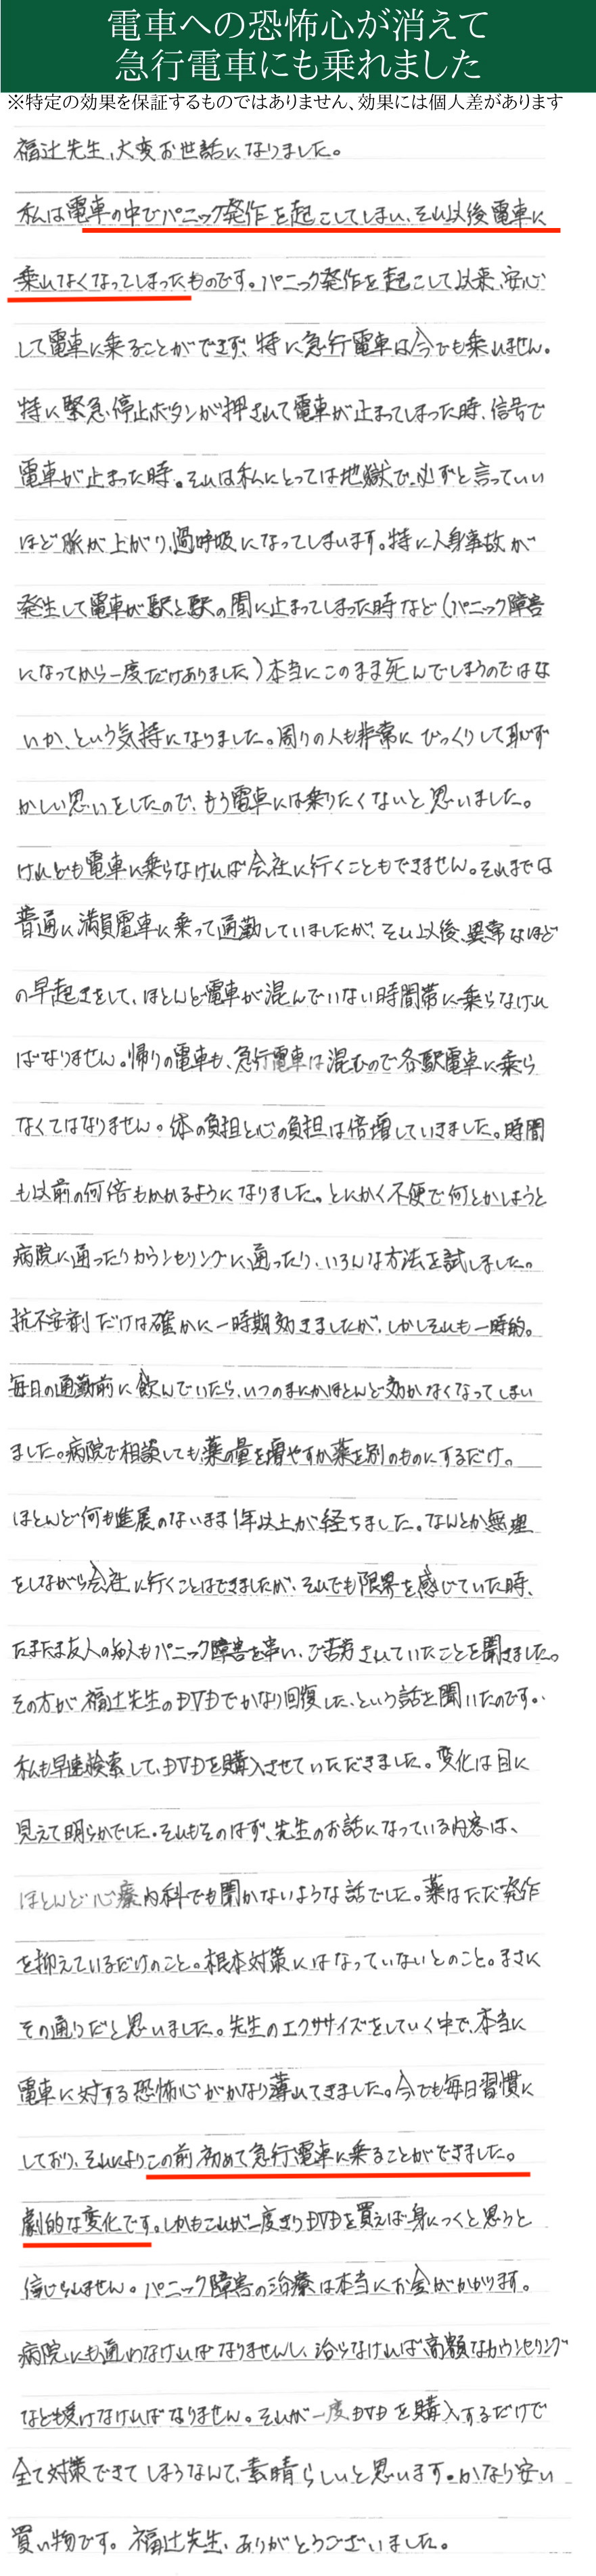 電車への恐怖心が消えて
急行電車にも乗れました
※特定の効果を保証するものではありません、効果には個人差があります
福辻先生、大変お世話になりました。
私は電車の中でパニック発作を起こしてしまい、それ以後電車に
乗れなくなってしまったものです。パニック発作を起こして以来、安心
して電車に乗ることができず、特に急行電車は今でも乗れません。
特に緊急停止ボタンが押されて電車が止まってしまった時、信号で
電車が止まった時。それは私にとっては地獄で、必ずと言っていい
ほど脈が上がり、過呼吸になってしまいます。特に人身事故が
発生して電車が駅と駅の間に止まってしまった時など(パニック障害
になってから一度だけありました)本当にこのまま死んでしまうのではな
いか、という気持になりました。周りの人も非常にびっくりして恥ず
かしい思いをしたので、もう電車には乗りたくないと思いました。
けれども電車に乗らなければ会社に行くこともできません。それまでは
普通に満員電車に乗って通勤していましたが、それ以後、異常なほど
の早起きをして、ほとんど電車が混んでいない時間帯に乗らなけれ
ばなりません。帰りの電車も、急行電車は混むので各駅電車に乗ら
なくてはなりません。体の負担と心の負担は倍増していきました。時間
も以前の何倍もかかるようになりました。とにかく不便で何とかしようと
病院に通ったりカウンセリングに通ったり、いろんな方法を試しました。
抗不安剤だけは確かに一時期効きましたが、しかしそれも一時的。
毎日の通勤前に飲んでいたら、いつのまにかほとんど効かなくなってしまい
ました。病院で相談しても薬の量を増やすか薬を別のものにするだけ。
ほとんど何も進展のないまま1年以上が経ちました。なんとか無理
をしながら会社に行くことはできましたが、それでも限界を感じていた時、
たまたま友人の知人もパニック障害を患い、ご苦労されていたことを聞きました。
その方が福辻先生のDVDでかなり回復した、という話を聞いたのです。
私も早速検索して、DVDを購入させていただきました。変化は目に
見えて明らかでした。それもそのはず、先生のお話になっている内容は、
ほとんど心療内科でも聞かないような話でした。薬はただ発作
を抑えているだけのこと。根本対策にはなっていないとのこと。まさに
その通りだと思いました。先生のエクササイズをしていく中で、本当に
電車に対する恐怖心がかなり薄れてきました。今でも毎日習慣に
しており、それによりこの前初めて急行電車に乗ることができました。
劇的な変化です。しかもこれが一度きりDVDを買えば身につくと思うと
信じられません。パニック障害の治療は本当にお金がかかります。
病院にも通わなければなりませんし、治らなければ高額なカウンセリング
なども受けなければなりません。それが一度DVDを購入するだけで
全て対策できてしまうなんて、素晴らしいと思います。かなり安い
買い物です。福辻先生、ありがとうございました。